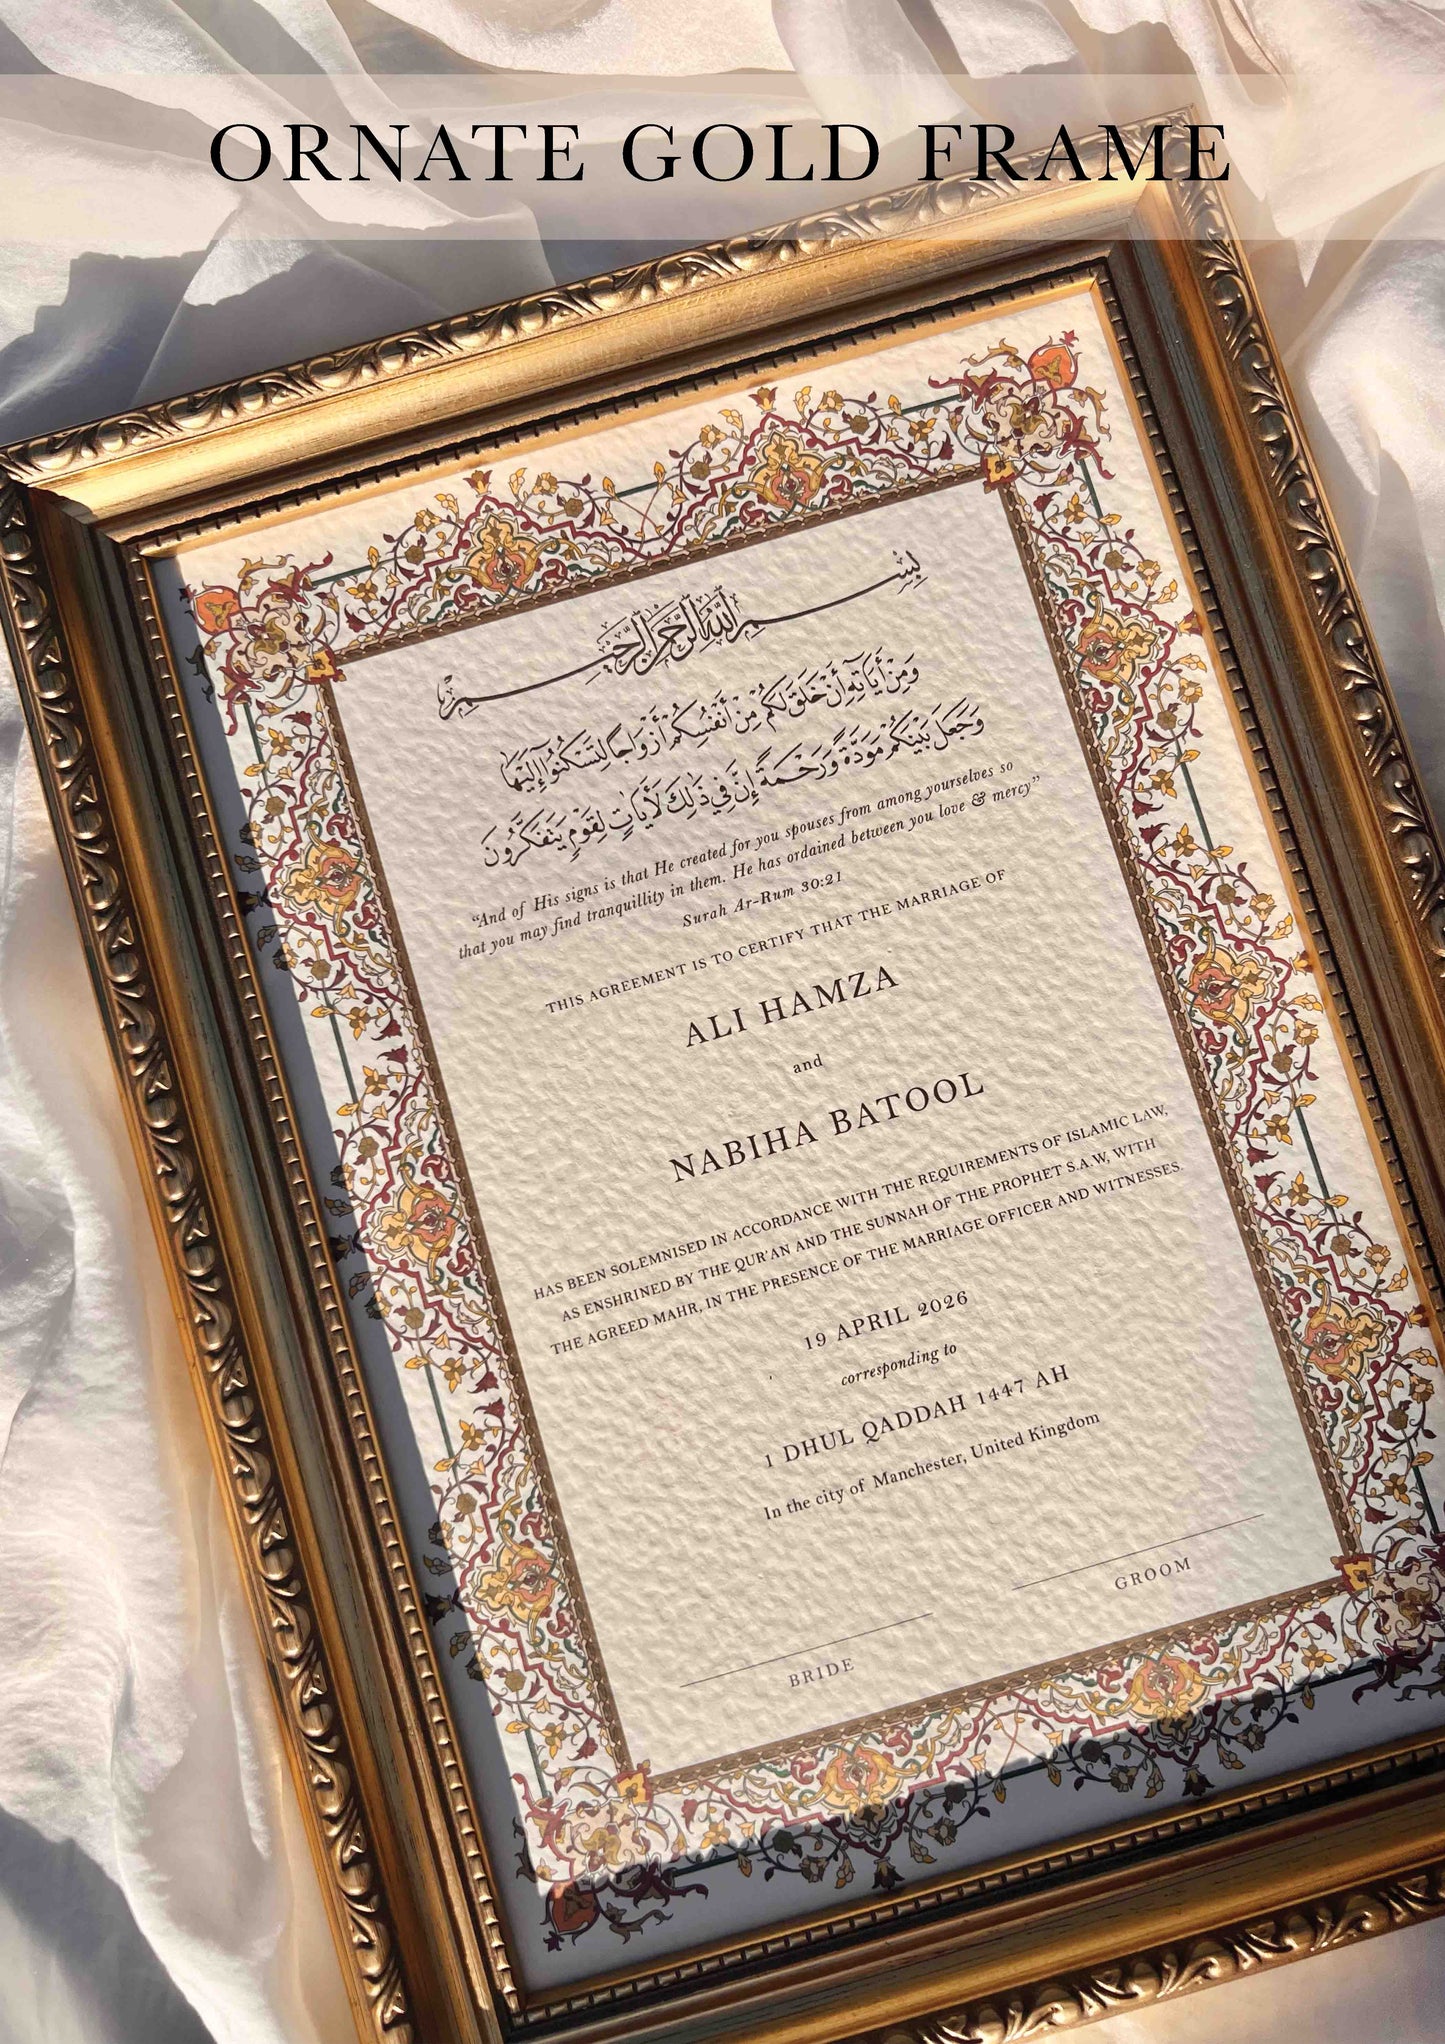 ORNATE GOLD FRAME
بِسْمِ اللَّهِ الرَّحْمَنِ الرَّحِيمِ
وَمِنْ أَيَاتِهِ أَنْ خَلَقَ لَكُمْ مِنْ أَنْفُسِكُمْ أَزْوَاجًا لِتَسْكُنُوا إِلَيْهَا
وَجَعَلَ بَيْنَكُمْ مَوَدَّةً وَرَحْمَةً إِنَّ فِي ذَلِكَ لَأَيَاتٍ لِقَوْمٍ يَتَفَكَّرُونَ
“And of His signs is that He created for you spouses from among yourselves so
that you may find tranquillity in them. He has ordained between you love & mercy”
Surah Ar-Rum 30:21
THIS AGREEMENT IS TO CERTIFY THAT THE MARRIAGE OF
ALI HAMZA
and
NABIHA BATOOL
HAS BEEN SOLEMNISED IN ACCORDANCE WITH THE REQUIREMENTS OF ISLAMIC LAW,
AS ENSHRINED BY THE QUR'AN AND THE SUNNAH OF THE PROPHET S.A.W, WITH
THE AGREED MAHR, IN THE PRESENCE OF THE MARRIAGE OFFICER AND WITNESSES.
19 APRIL 2026
corresponding to
1 DHUL QADDAH 1447 AH
In the city of Manchester, United Kingdom
BRIDE
GROOM